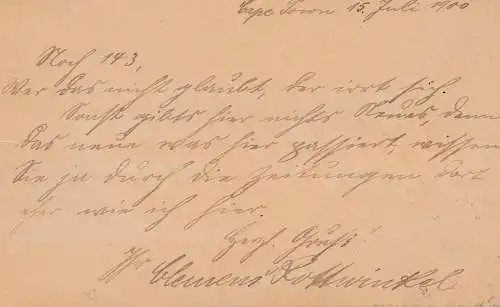 Cape Town 15. Juli 1900
Noch 143,
Wer das nicht glaubt, der irrt sich.
Sonst gibts hier nichts Neues, denn
das neue was hier passiert, wissen
Sie ja durch die Zeitungen dort
eher wie ich hier.
Herzl. Gruß!
Ihr Clemens Rottwinkel